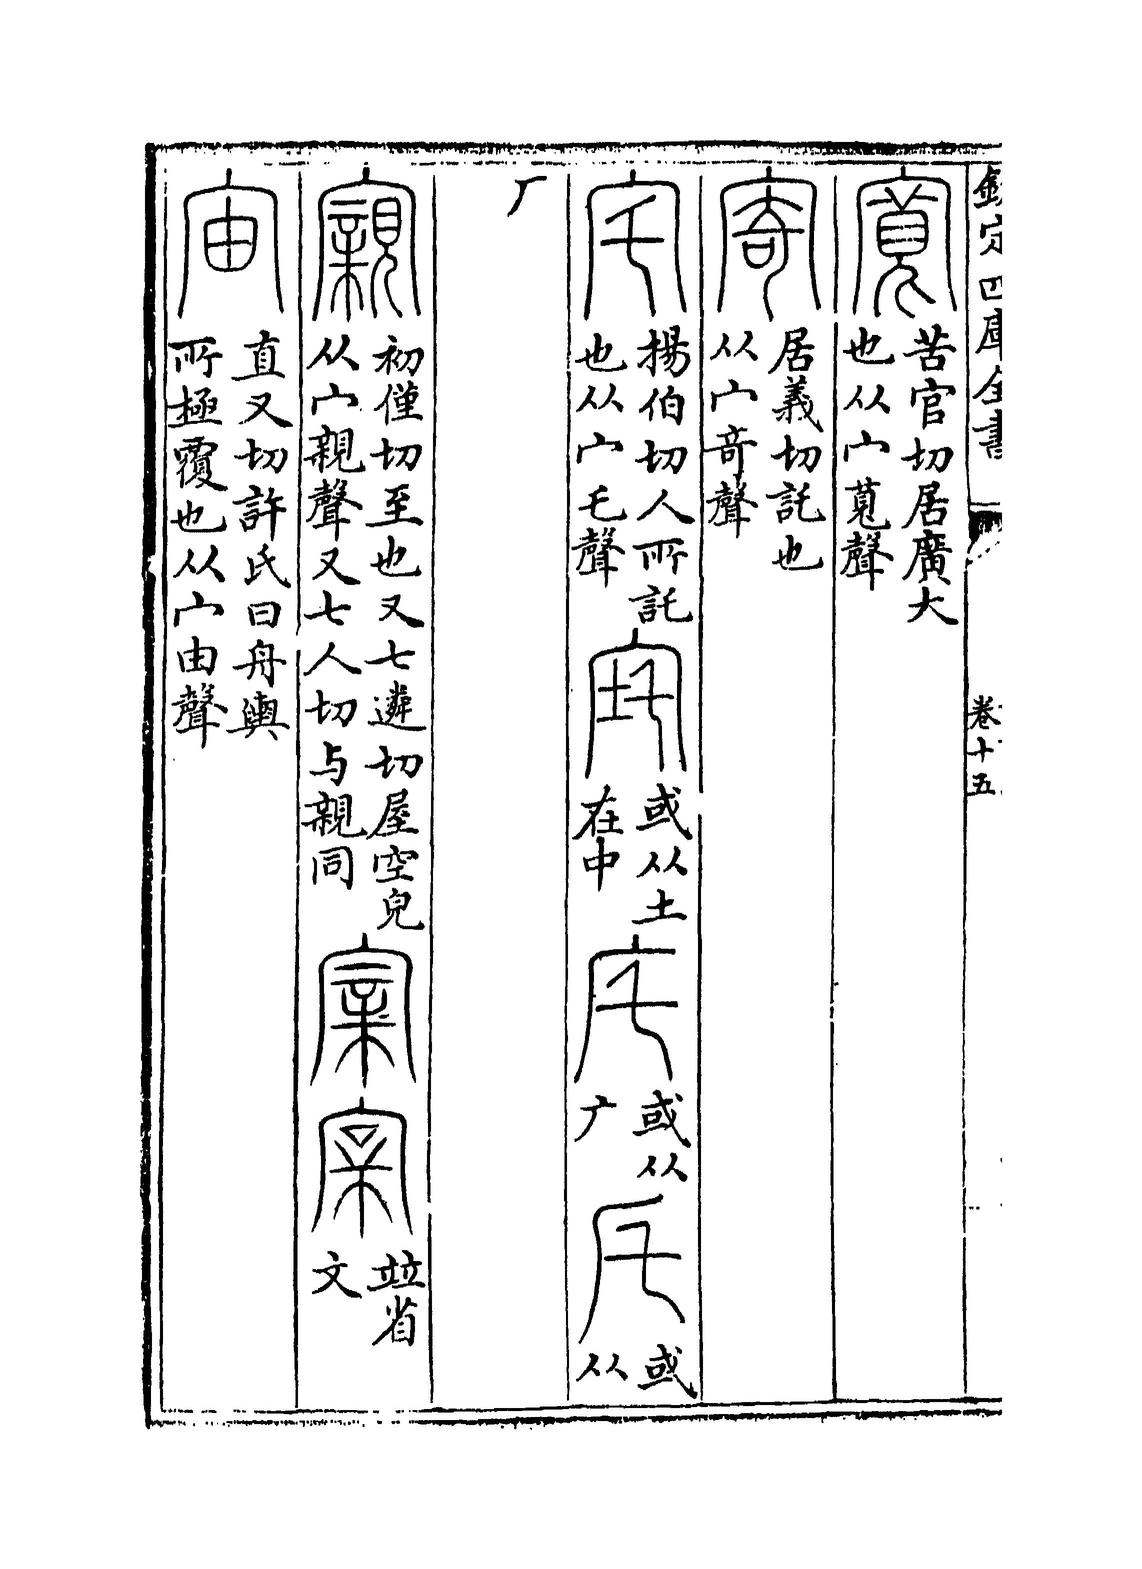 欽定四庫全書
卷十五
寬 苦官切居廣大
也从宀萈聲
寄 居義切託也
从宀奇聲
宅 楊伯切人所託
也从宀乇聲
㡯 或从土
在中
㡯 或从
广
厇 或
从
厂
寴 初僅切至也又七遴切屋空皃
从宀親聲又七人切与親同
並省
文
宙 直又切許氏曰舟輿
所極覆也从宀由聲